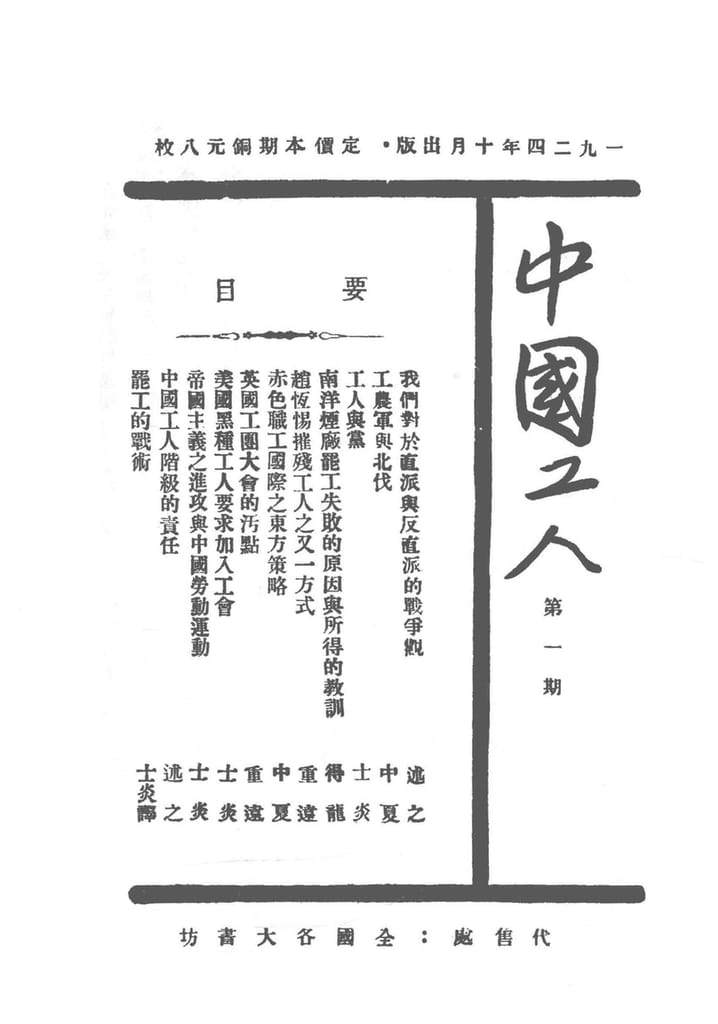 一九二四年十月出版・定價本期銅元八枚
中國工人
第一期
要目
我們對於直派與反直派的戰爭觀 述之
工農軍與北伐 中夏
工人與黨 士炎
南洋煙廠罷工失敗的原因與所得的教訓 得龍
趙恆惕摧殘工人之又一方式 重遠
赤色職工國際之東方策略 中夏
英國工團大會的污點 重遠
美國黑種工人要求加入工會 士炎
帝國主義之進攻與中國勞動運動 士炎
中國工人階級的責任 述之
罷工的戰術 士炎譯
代售處：全國各大書坊